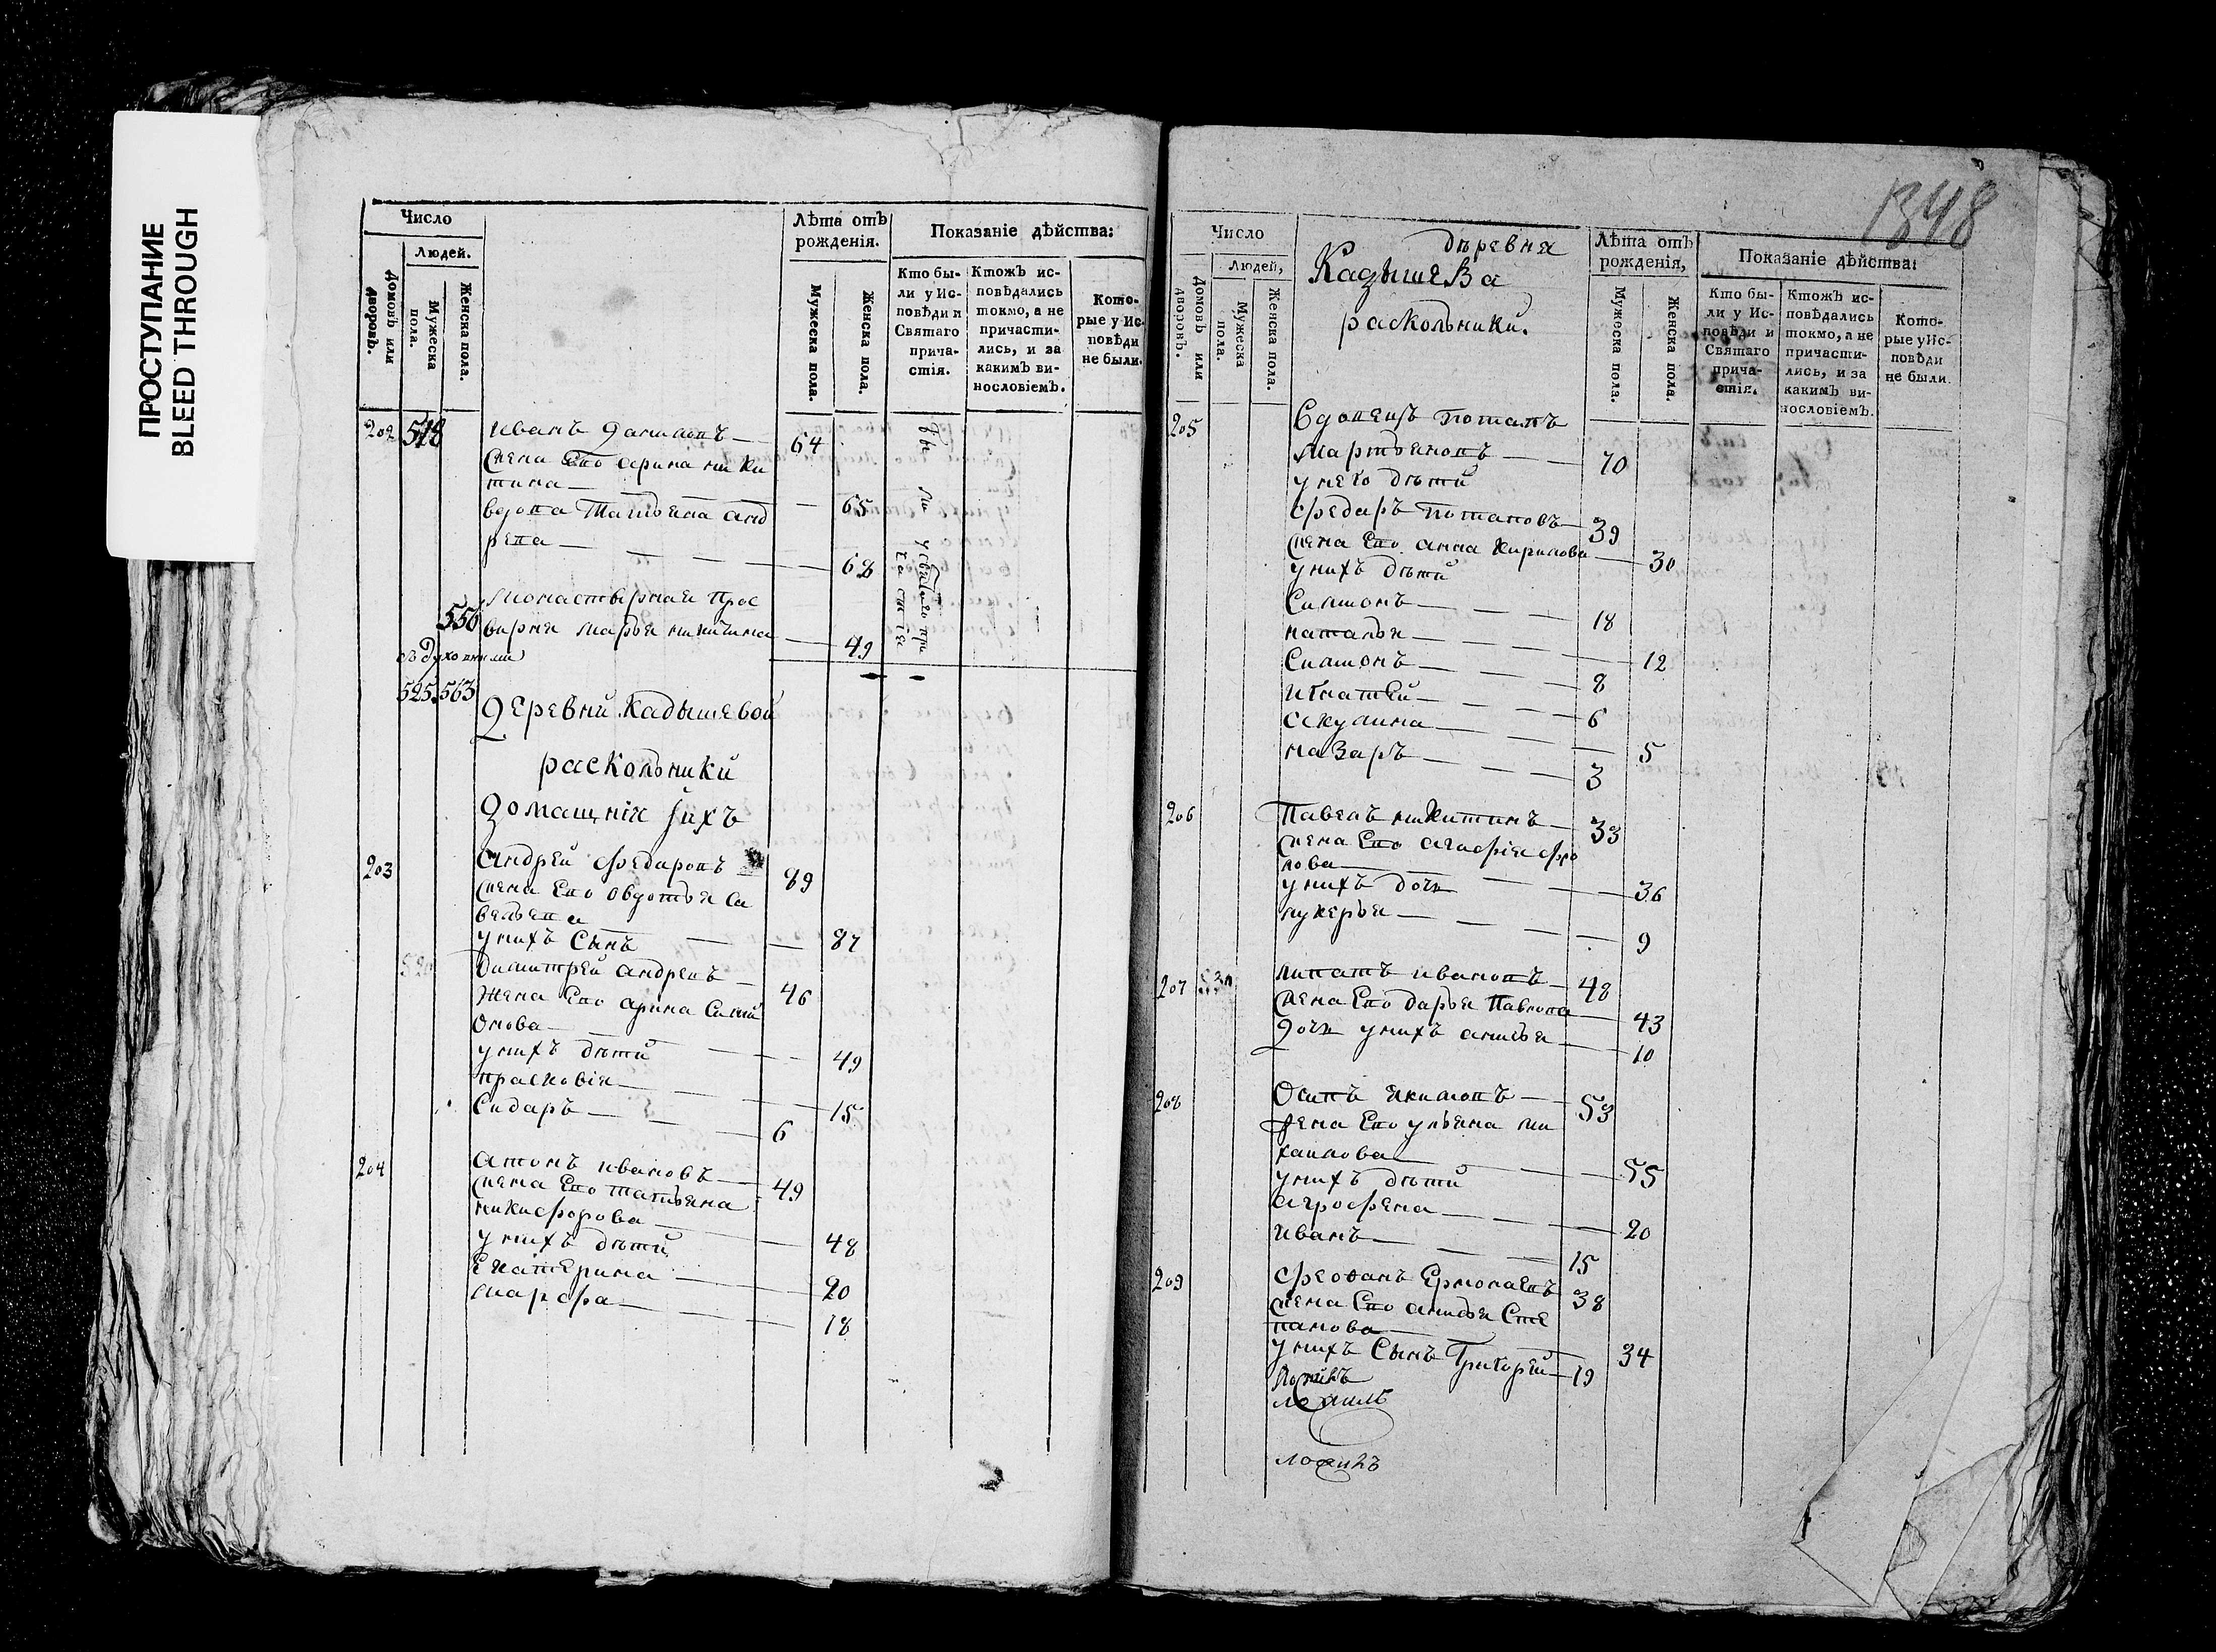 ПРОСТУПАНИЕ
BLEED THROUGH
Число
Людей.
Домовъ или дворовъ.
Мужеска пола.
Женска пола.
Лѣта отъ рожденія.
Мужеска пола.
Женска пола.
Показаніе дѣйства:
Кто бы-
ли у Ис-
повѣди и
Святаго
прича-
стія.
Ктожъ ис-
повѣдались
токмо, а не
причасти-
лись, и за
какимъ ви-
нословіемъ.
Кото-
рые у Ис-
повѣди
не были.
202 518 Иванъ — 64
жена Ево арина ники
тина — 65
вдова татьяна анд
рева — 68
Монастырная прос
556 вирня марья никитина — 49
съ духовными
525. 563
Деревни Кадышевой
раскольники
Домашнія ихъ
203 Андрей Федаровъ — 89
жена Ево овдотья са
вельева — 87
у нихъ Сынъ
Димитрей андревъ — 46
Жена Ево арина Сими
онова — 49
у нихъ дѣти
прасковія — 15
Сидаръ — 6
204 антонъ ивановъ — 49
жена Ево татьяна
никифорова — 48
у нихъ дѣти
Екатерина — 20
марфа — 18
1348
Число
Людей,
Домовъ или дворовъ.
Мужеска пола.
Женска пола.
деревня
Кадышева
раскольники.
Лѣта отъ
рожденія,
Мужеска пола.
Женска пола.
Показаніе дѣйства:
Кто бы-
ли у Ис-
повѣди и
Святаго
прича-
стія.
Ктожъ ис-
повѣдались
токмо, а не
причасти-
лись, и за
какимъ ви-
нословіемъ.
Кото-
рые у Ис-
повѣди
не были.
205 Вдовецъ потапъ
мартьяновъ — 70
у него дѣти
федаръ потаповъ — 39
жена Ево анна кирилова — 30
у нихъ дѣти
Симионъ — 18
наталья — 12
Симионъ — 8
игнатей — 6
акулина — 5
назаръ — 3
206 Павелъ никитинъ — 33
жена Ево агафія фро
лова — 36
у нихъ дочь
лукерья — 9
207 липатъ ивановъ — 48
жена Ево дарья Павлова — 43
дочь у нихъ анисья — 10
208 Осипъ якимовъ — 53
жена Ево ульяна ми
хаилова — 55
у нихъ дѣти
агрофена — 20
иванъ — 15
209 феофанъ Ермолаевъ — 38
жена Ево анисья Сте
панова — 34
у нихъ Сынъ Григорей — 19